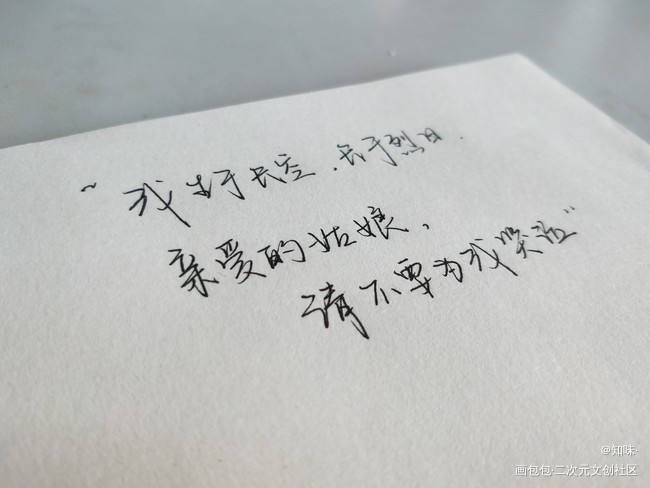 “我生于长空，长于烈日.
亲爱的姑娘，
请不要为我哭泣”
@知味·
画包包·二次元文创社区